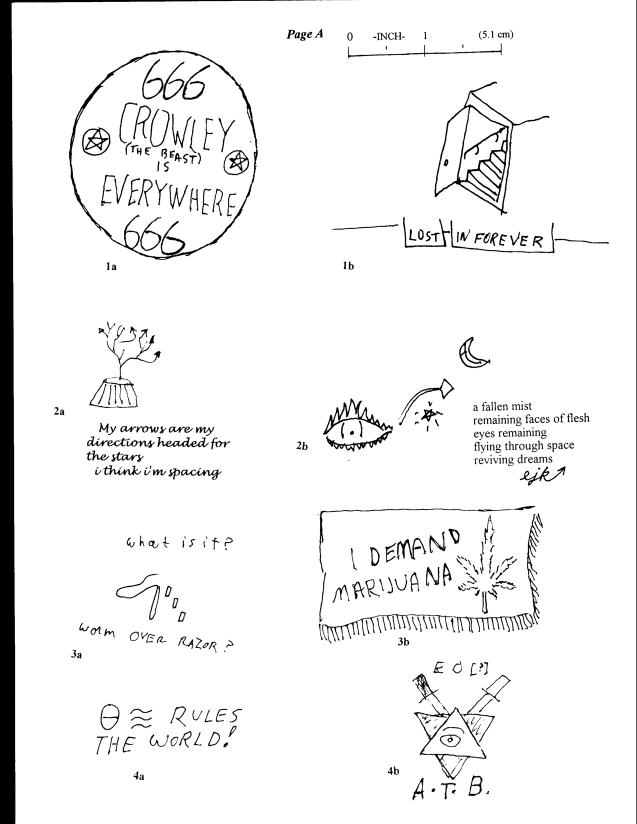 Page A
0 -INCH- 1 (5.1 cm)
666
CROWLEY
(THE BEAST)
IS
EVERYWHERE
666
1a
LOST IN FOREVER
1b
2a
My arrows are my
directions headed for
the stars
i think i'm spacing
2b
a fallen mist
remaining faces of flesh
eyes remaining
flying through space
reviving dreams
ejk
what is it?
worm OVER RAZOR?
3a
I DEMAND
MARIJUANA
3b
θ ≈ RULES
THE WORLD!
4a
E O [?]
A.T.B.
4b